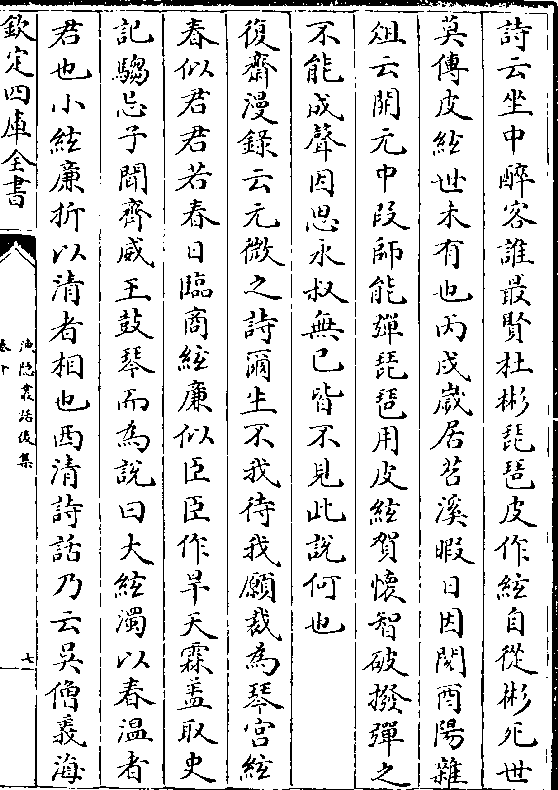 詩云坐中醉客誰最賢杜彬琵琶皮作絃自從彬死世
莫傳皮絃世未有也丙戌歲居苕溪暇日因閱酉陽雜
俎云開元中段師能彈琵琶用皮絃賀懷智破撥彈之
不能成聲因思永叔無已皆不見此說何也
復齋漫錄云元微之詩爾生不我待我願裁為琴宮絃
春似君君若春日臨商絃廉似臣臣作旱天霖盖取史
記騶忌子聞齊威王鼓琴而為說曰大絃濁以春温者
君也小絃廉折以清者相也西清詩話乃云吳僧義海
欽定四庫全書
漁隱叢話後集
卷十
七